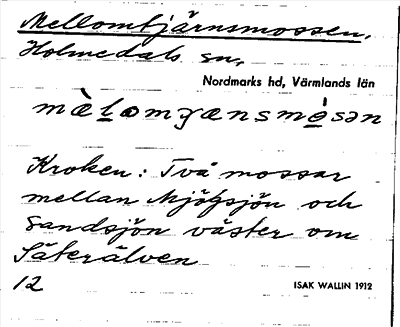 Mellomtjärnsmossen.
Holmedals sn,
Nordmarks hd, Värmlands län
Kroken: Två mossar
mellan och
Sandsjön väster om
Säterälven
12
ISAK WALLIN 1912